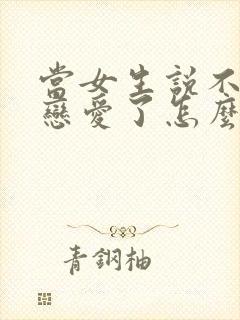 當女生説不
戀愛了怎麼
青鋼柚